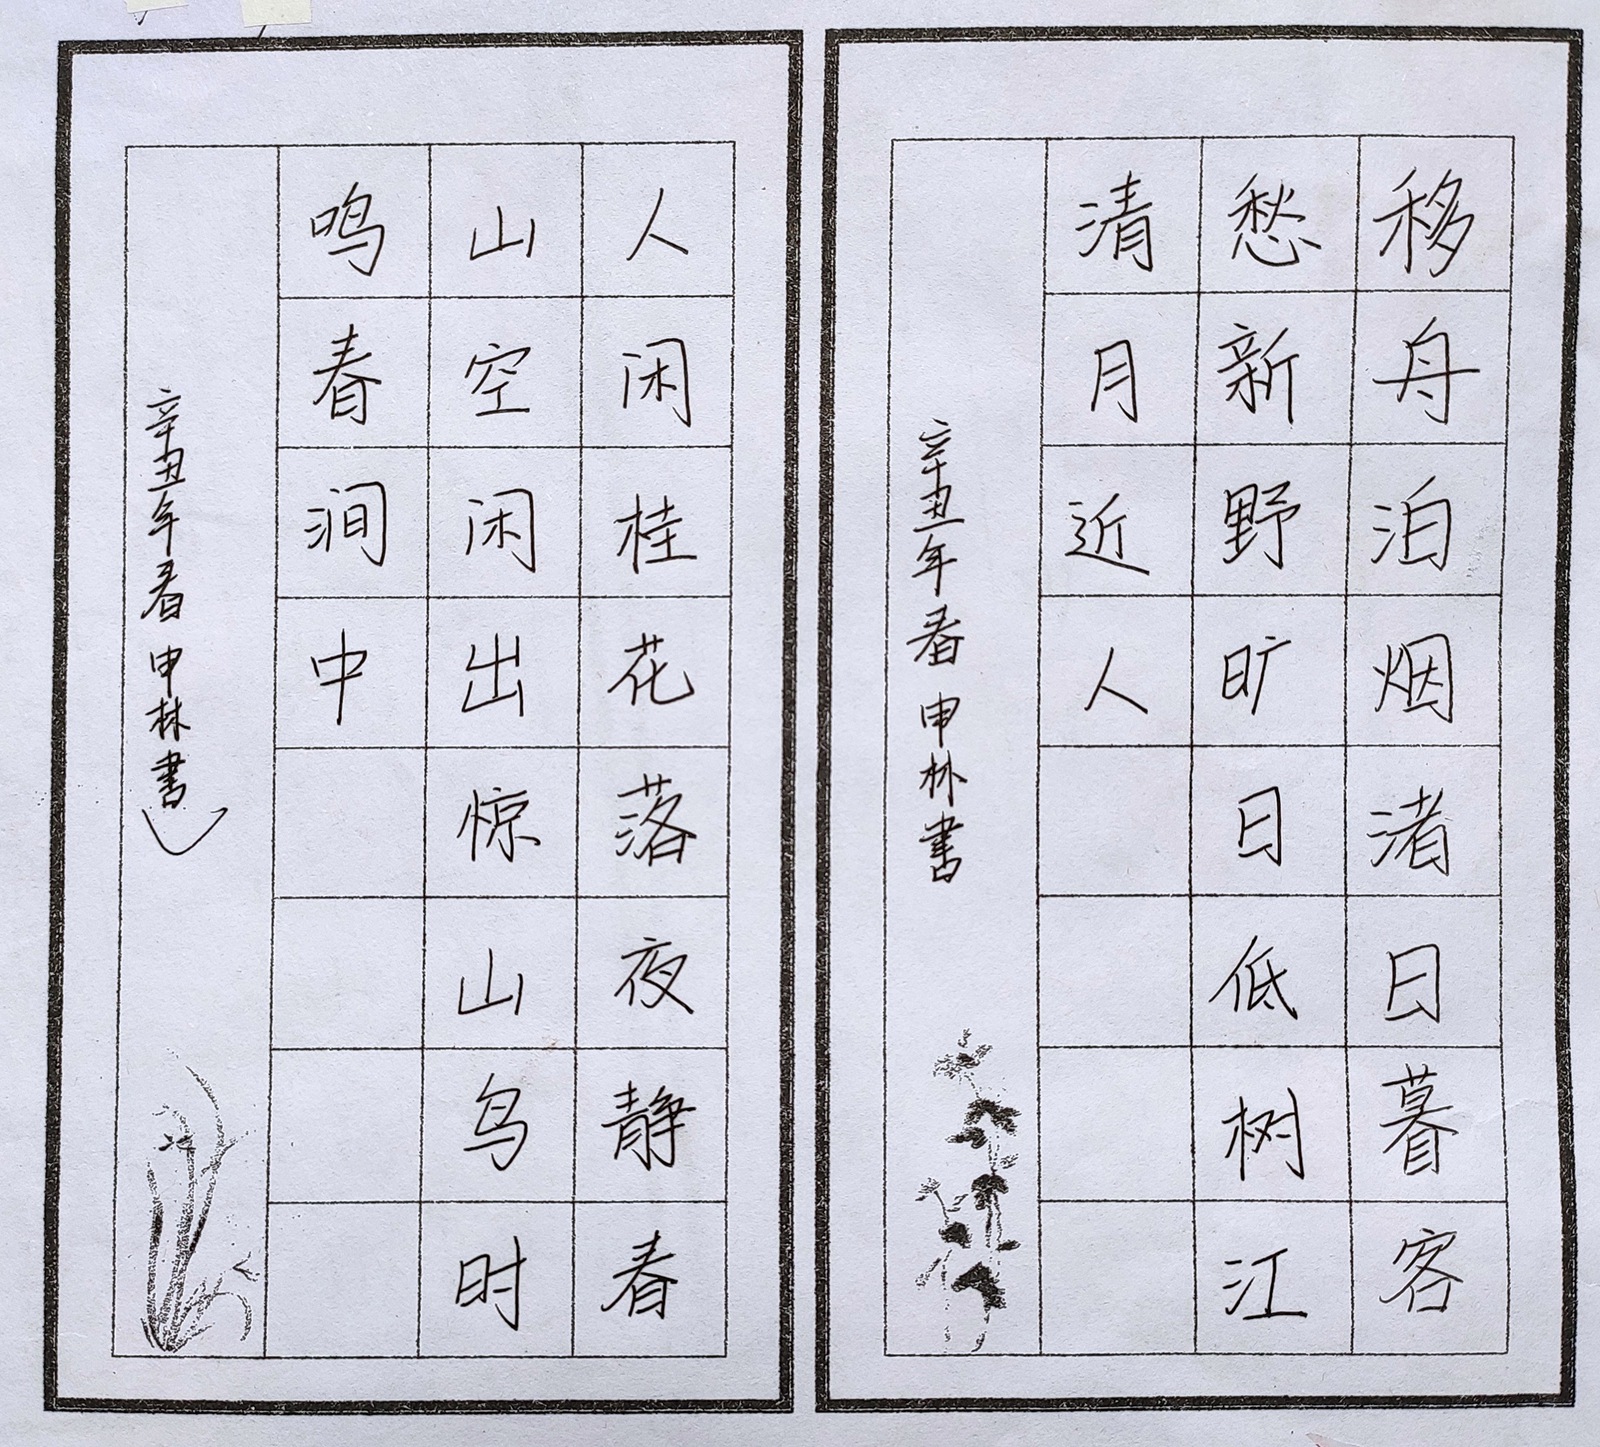 移舟泊烟渚日暮客
愁新野旷日低树江
清月近人
辛丑年春 申林書
人闲桂花落夜静春
山空闲出惊山鸟时
鸣春涧中
辛丑年春 申林書